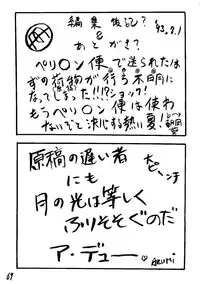 編集後記?
&
あとがき?
'93.9.1
ペリ〇ン便で送られたは
ずの荷物が行ち不明に
なってしまった!!!?ショック!
もうペリ〇ン便は使わ
ないぞと決心する熱い夏!
原稿の遅い者
にも
月の光は等しく
ふりそそぐのだ
ア・デュー
69